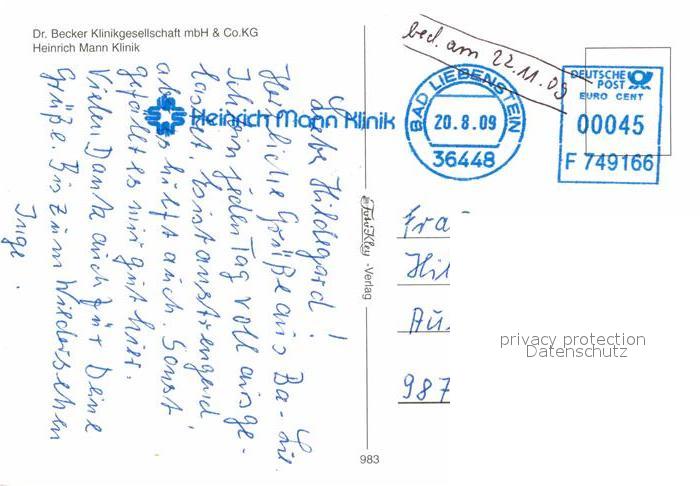 Dr. Becker Klinikgesellschaft mbH & Co.KG
Heinrich Mann Klinik
Heinrich Mann Klinik
bed. am 22.11.09
BAD LIEBENSTEIN
20.8.09
36448
DEUTSCHE
POST
EURO CENT
00045
F 749166
Liebe Hildegard!
Herzliche Grüße aus Ba-Lie.
Ich bin jeden Tag voll ausge-
lastet. Ist anstrengend
aber es hilft auch. Sonst
gefällt es mir gut hier.
Vielen Dank auch für Deine
Grüße. Bis zum Wiedersehen
Inge.
Verlag
983
Fra
Hil
Au
987
privacy protection
Datenschutz